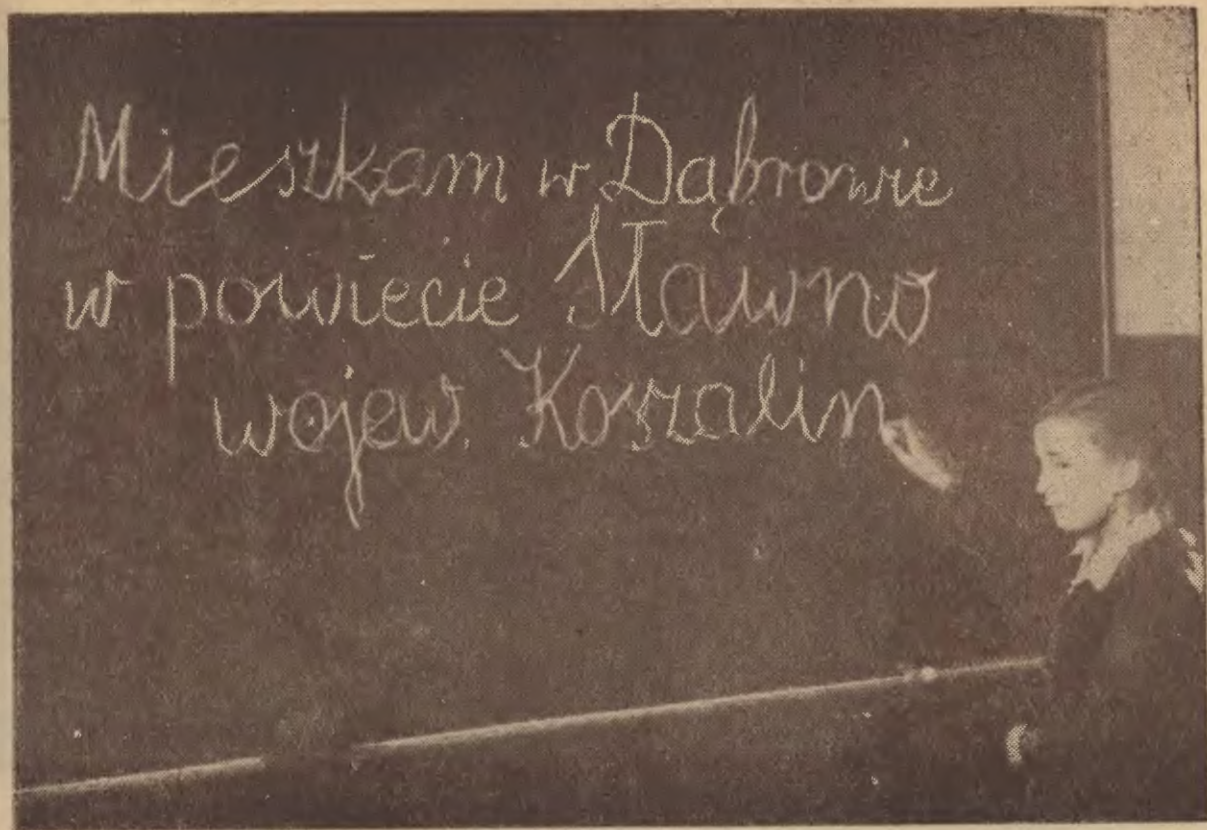 Mieszkam w Dąbrowie
w powiecie Sławno
wojew. Koszalin